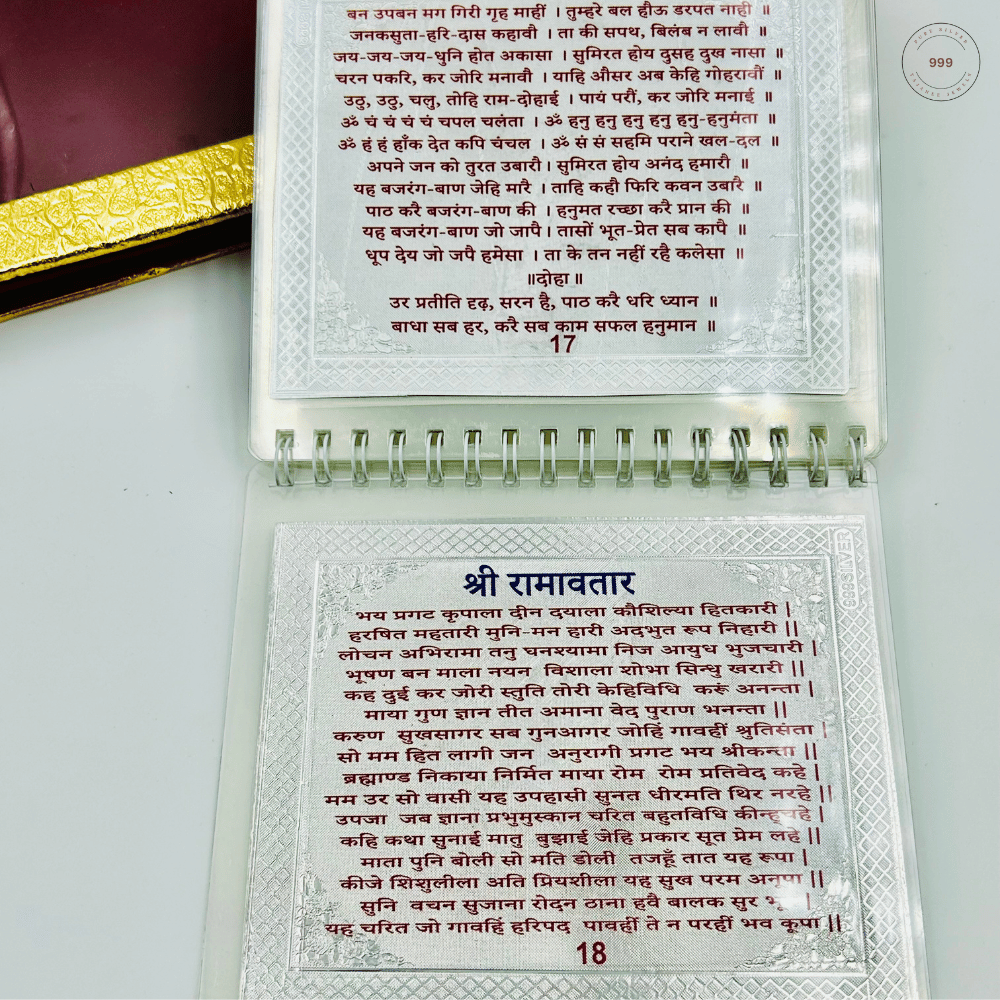 PURE SILVER
999
बन उपबन मग गिरी गृह माहीं । तुम्हरे बल हौऊ डरपत नाही ॥
जनकसुता-हरि-दास कहावौ । ता की सपथ, बिलंब न लावौ ॥
जय-जय-जय-धुनि होत अकासा । सुमिरत होय दुसह दुख नासा ॥
चरन पकरि, कर जोरि मनावौ । याहि औसर अब केहि गोहरावौं ॥
उठु, उठु, चलु, तोहि राम-दोहाई । पायं परौं, कर जोरि मनाई ॥
ॐ चं चं चं चं चपल चलंता । ॐ हनु हनु हनु हनु हनु-हनुमंता ॥
ॐ हं हं हाँक देत कपि चंचल । ॐ सं सं सहमि पराने खल-दल ॥
अपने जन को तुरत उबारौ । सुमिरत होय अनंद हमारौ ॥
यह बजरंग-बाण जेहि मारै । ताहि कहौ फिरि कवन उबारै ॥
पाठ करै बजरंग-बाण की । हनुमत रच्छा करै प्रान की ॥
यह बजरंग-बाण जो जापै । तासों भूत-प्रेत सब कापै ॥
धूप देय जो जपै हमेसा । ता के तन नहीं रहै कलेसा ॥
॥दोहा॥
उर प्रतीति दृढ़, सरन है, पाठ करै धरि ध्यान ॥
बाधा सब हर, करै सब काम सफल हनुमान ॥
17
999 SILVER
श्री रामावतार
भय प्रगट कृपाला दीन दयाला कौशिल्या हितकारी |
हरषित महतारी मुनि-मन हारी अदभुत रूप निहारी ||
लोचन अभिरामा तनु घनश्यामा निज आयुध भुजचारी |
भूषण बन माला नयन विशाला शोभा सिन्धु खरारी ||
कह दुई कर जोरी स्तुति तोरी केहिविधि करूं अनन्ता |
माया गुण ज्ञान तीत अमाना वेद पुराण भनन्ता ||
करुण सुखसागर सब गुनआगर जोहिं गावहीं श्रुतिसंता |
सो मम हित लागी जन अनुरागी प्रगट भय श्रीकन्ता ||
ब्रह्माण्ड निकाया निर्मित माया रोम रोम प्रतिवेद कहे |
मम उर सो वासी यह उपहासी सुनत धीरमति थिर नरहे ||
उपजा जब ज्ञाना प्रभुमुस्कान चरित बहुतविधि कीन्हचहे |
कहि कथा सुनाई मातु बुझाई जेहि प्रकार सूत प्रेम लहे ||
माता पुनि बोली सो मति डोली तजहूँ तात यह रूपा |
कीजे शिशुलीला अति प्रियशीला यह सुख परम अनूपा ||
सुनि वचन सुजाना रोदन ठाना हवै बालक सुर |
यह चरित जो गावहिं हरिपद पावहीं ते न परहीं भव कूपा ||
18